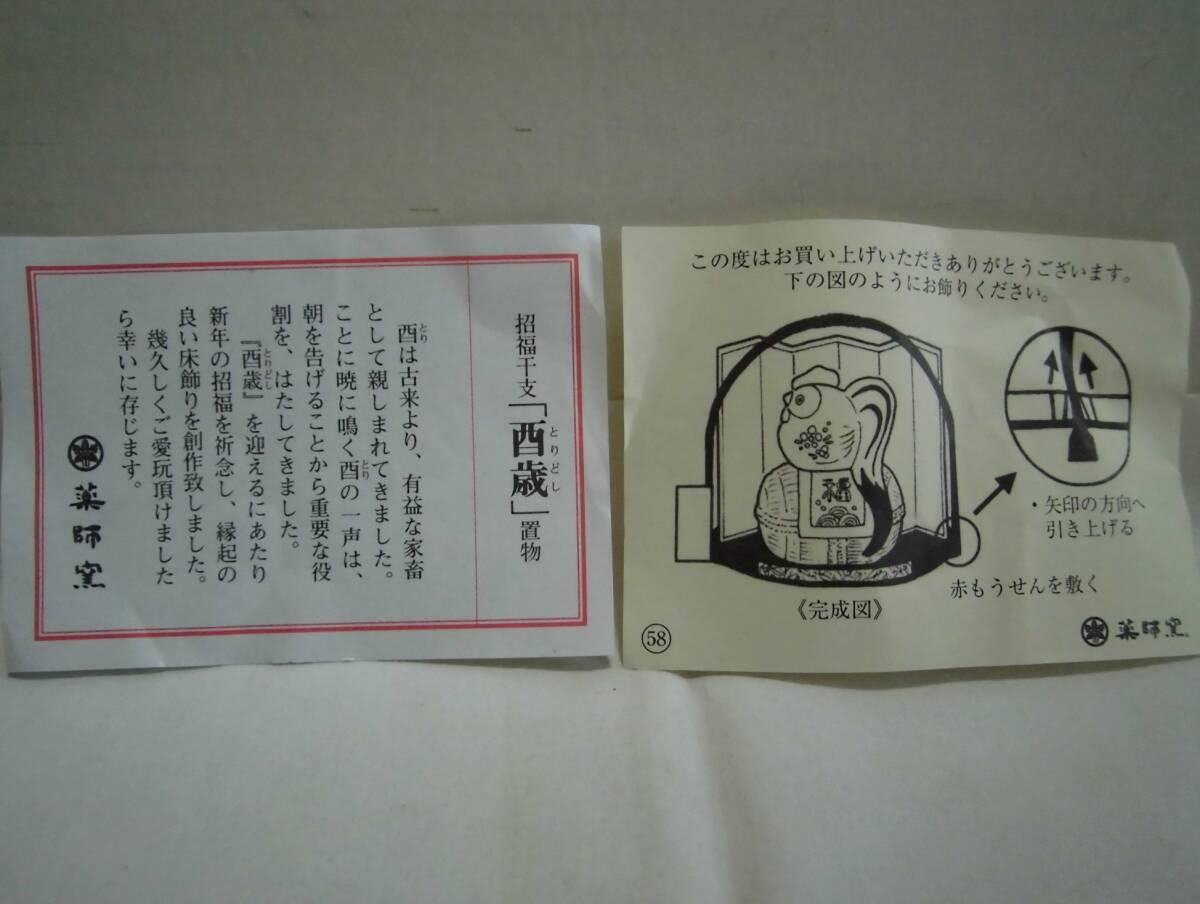 招福干支「酉歳」置物
とりどし
酉は古来より、有益な家畜
とり
として親しまれてきました。
ことに暁に鳴く酉の一声は、
とり
朝を告げることから重要な役
割を、はたしてきました。
『酉歳』を迎えるにあたり
とりどし
新年の招福を祈念し、縁起の
良い床飾りを創作致しました。
幾久しくご愛玩頂けました
ら幸いに存じます。
薬師窯
この度はお買い上げいただきありがとうございます。
下の図のようにお飾りください。
福
・矢印の方向へ
引き上げる
赤もうせんを敷く
《完成図》
58
薬師窯